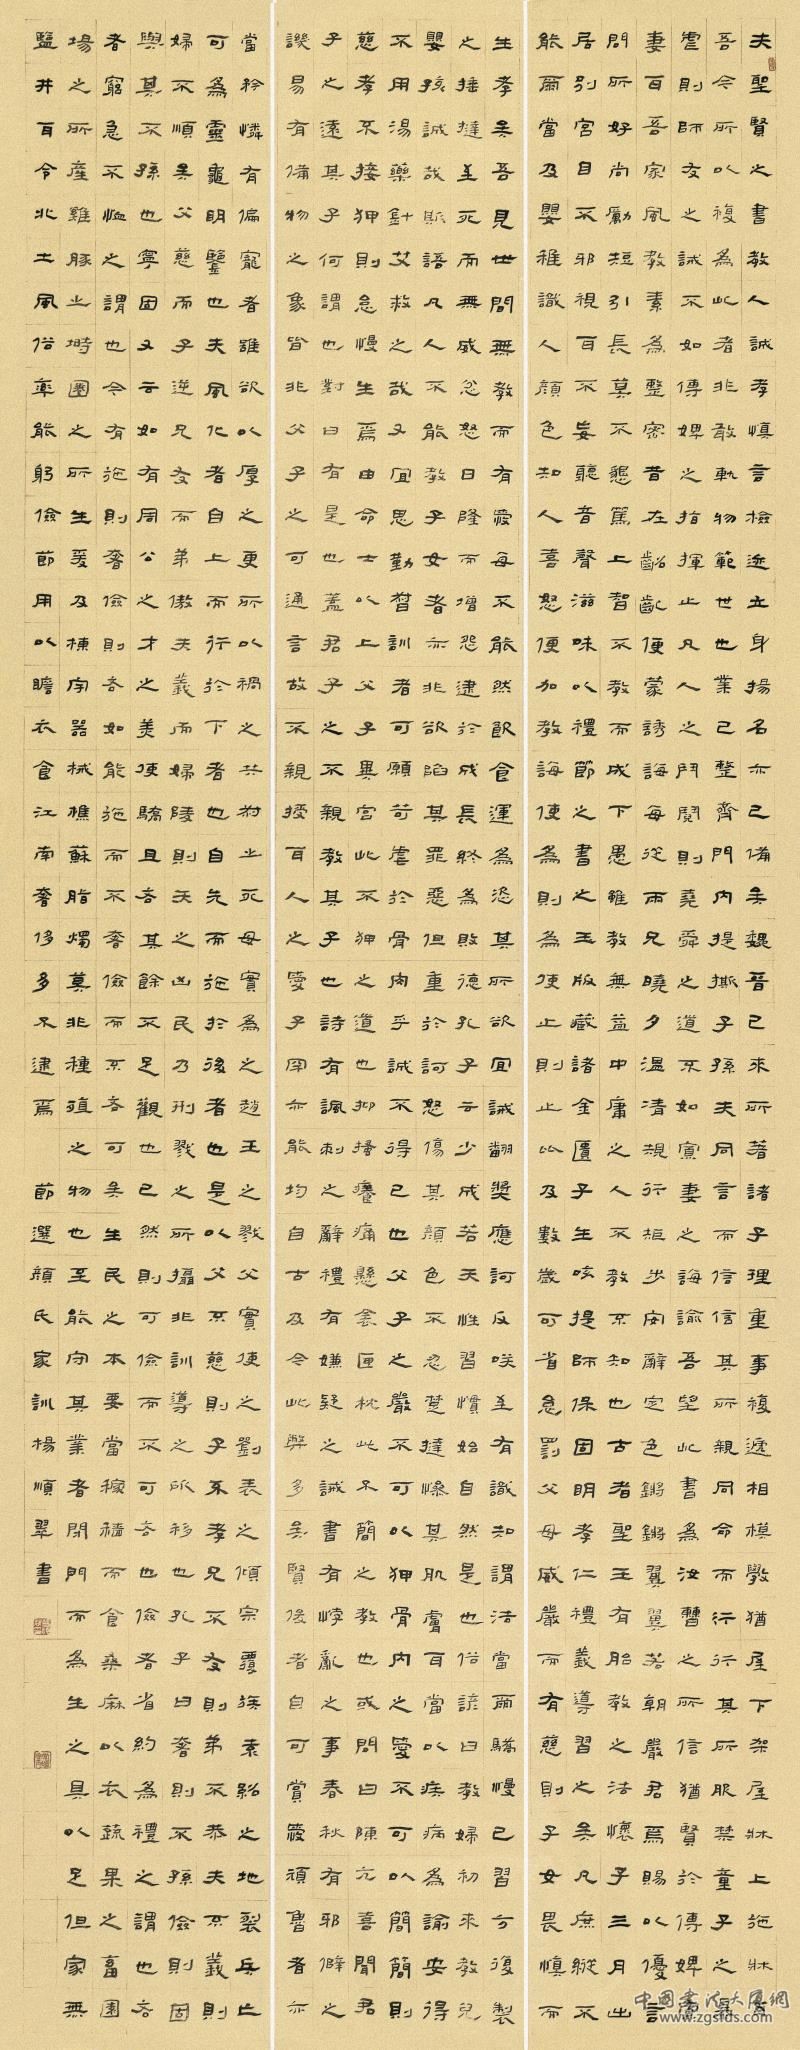 夫聖賢之書教人誠孝慎言檢迹立身揚名亦已備矣魏晉已來所著諸子理重事複遞相模斆猶屋下架屋牀上施牀耳
吾今所以複為此者非敢軌物範世也業已整齊門內提撕子孫夫同言而信信其所親同命而行行其所服禁童子之暴
虐則師友之誡不如傅婢之指揮止凡人之鬥鬩則堯舜之道不如寡妻之誨諭吾望此書為汝曹之所信猶賢於傅婢寡
妻耳吾家風教素為整密昔在齠齔便蒙誘誨每從兩兄曉夕溫凊規行矩步安辭定色鏘鏘翼翼若朝嚴君焉賜以優言
問所好尚勵短引長莫不懇篤上智不教而成下愚雖教無益中庸之人不教不知也古者聖王有胎教之法懷子三月出
居別宮目不邪視耳不妄聽音聲滋味以禮節之書之玉版藏諸金匱子生咳提師保固明孝仁禮義導習之矣凡庶縱不
能爾當及嬰稚識人顏色知人喜怒便加教誨使為則為使止則止比及數歲可省笞罰父母威嚴而有慈則子女畏慎而
生孝矣吾見世間無教而有愛每不能然飲食運為恣其所欲宜誡翻獎應訶反咲至有識知謂法當爾驕慢已習方復製
之捶撻至死而無威忿怒日隆而增怨逮於成長終為敗德孔子云少成若天性習慣始自然是也俗諺曰教婦初來教兒
嬰孩誠哉斯語凡人不能教子女者亦非欲陷其罪惡但重於訶怒傷其顏色不忍楚撻慘其肌膚耳當以疾病為諭安得
不用湯藥針艾救之哉又宜思勤督訓者可願苛虐於骨肉乎誠不得已也父子之嚴不可以狎骨肉之愛不可以簡簡則
慈孝不接狎則怠慢生焉由命士以上父子異宮此不狎之道也抑搔癢痛懸衾匣枕此不簡之教也或問曰陳亢喜聞君
子之遠其子何謂也對曰有是也蓋君子之不親教其子也詩有諷刺之辭禮有嫌疑之誡書有悖亂之事春秋有邪僻之
譏易有備物之象皆非父子之可通言故不親授耳人之愛子罕亦能均自古及今此弊多矣賢俊者自可賞愛頑魯者亦
當矜憐有偏寵者雖欲以厚之更所以禍之共叔之死母實為之趙王之戮父實使之劉表之傾宗覆族袁紹之地裂兵亡
可為靈龜明鑒也夫風化者自上而行於下者也自先而施於後者也是以父不慈則子不孝兄不友則弟不恭夫不義則
婦不順矣父慈而子逆兄友而弟傲夫義而婦陵則天之凶民乃刑戮之所攝非訓導之所移也孔子曰奢則不孫儉則固
與其不孫也寧固又云如有周公之才之美使驕且吝其餘不足觀也已然則可儉而不可吝也儉者省約為禮之謂也吝
者窮急不恤之謂也今有施則奢儉則吝如能施而不奢儉而不吝可矣生民之本要當稼穡而食桑麻以衣蔬果之畜園
場之所產雞豚之塒圈之所生爰及棟宇器械樵蘇脂燭莫非種殖之物也至能守其業者閉門而為生之具以足但家無
鹽井耳今北土風俗率能躬儉節用以贍衣食江南奢侈多不逮焉 節選顏氏家訓楊順翠書
中國書法大廈網
www.zgsfds.com